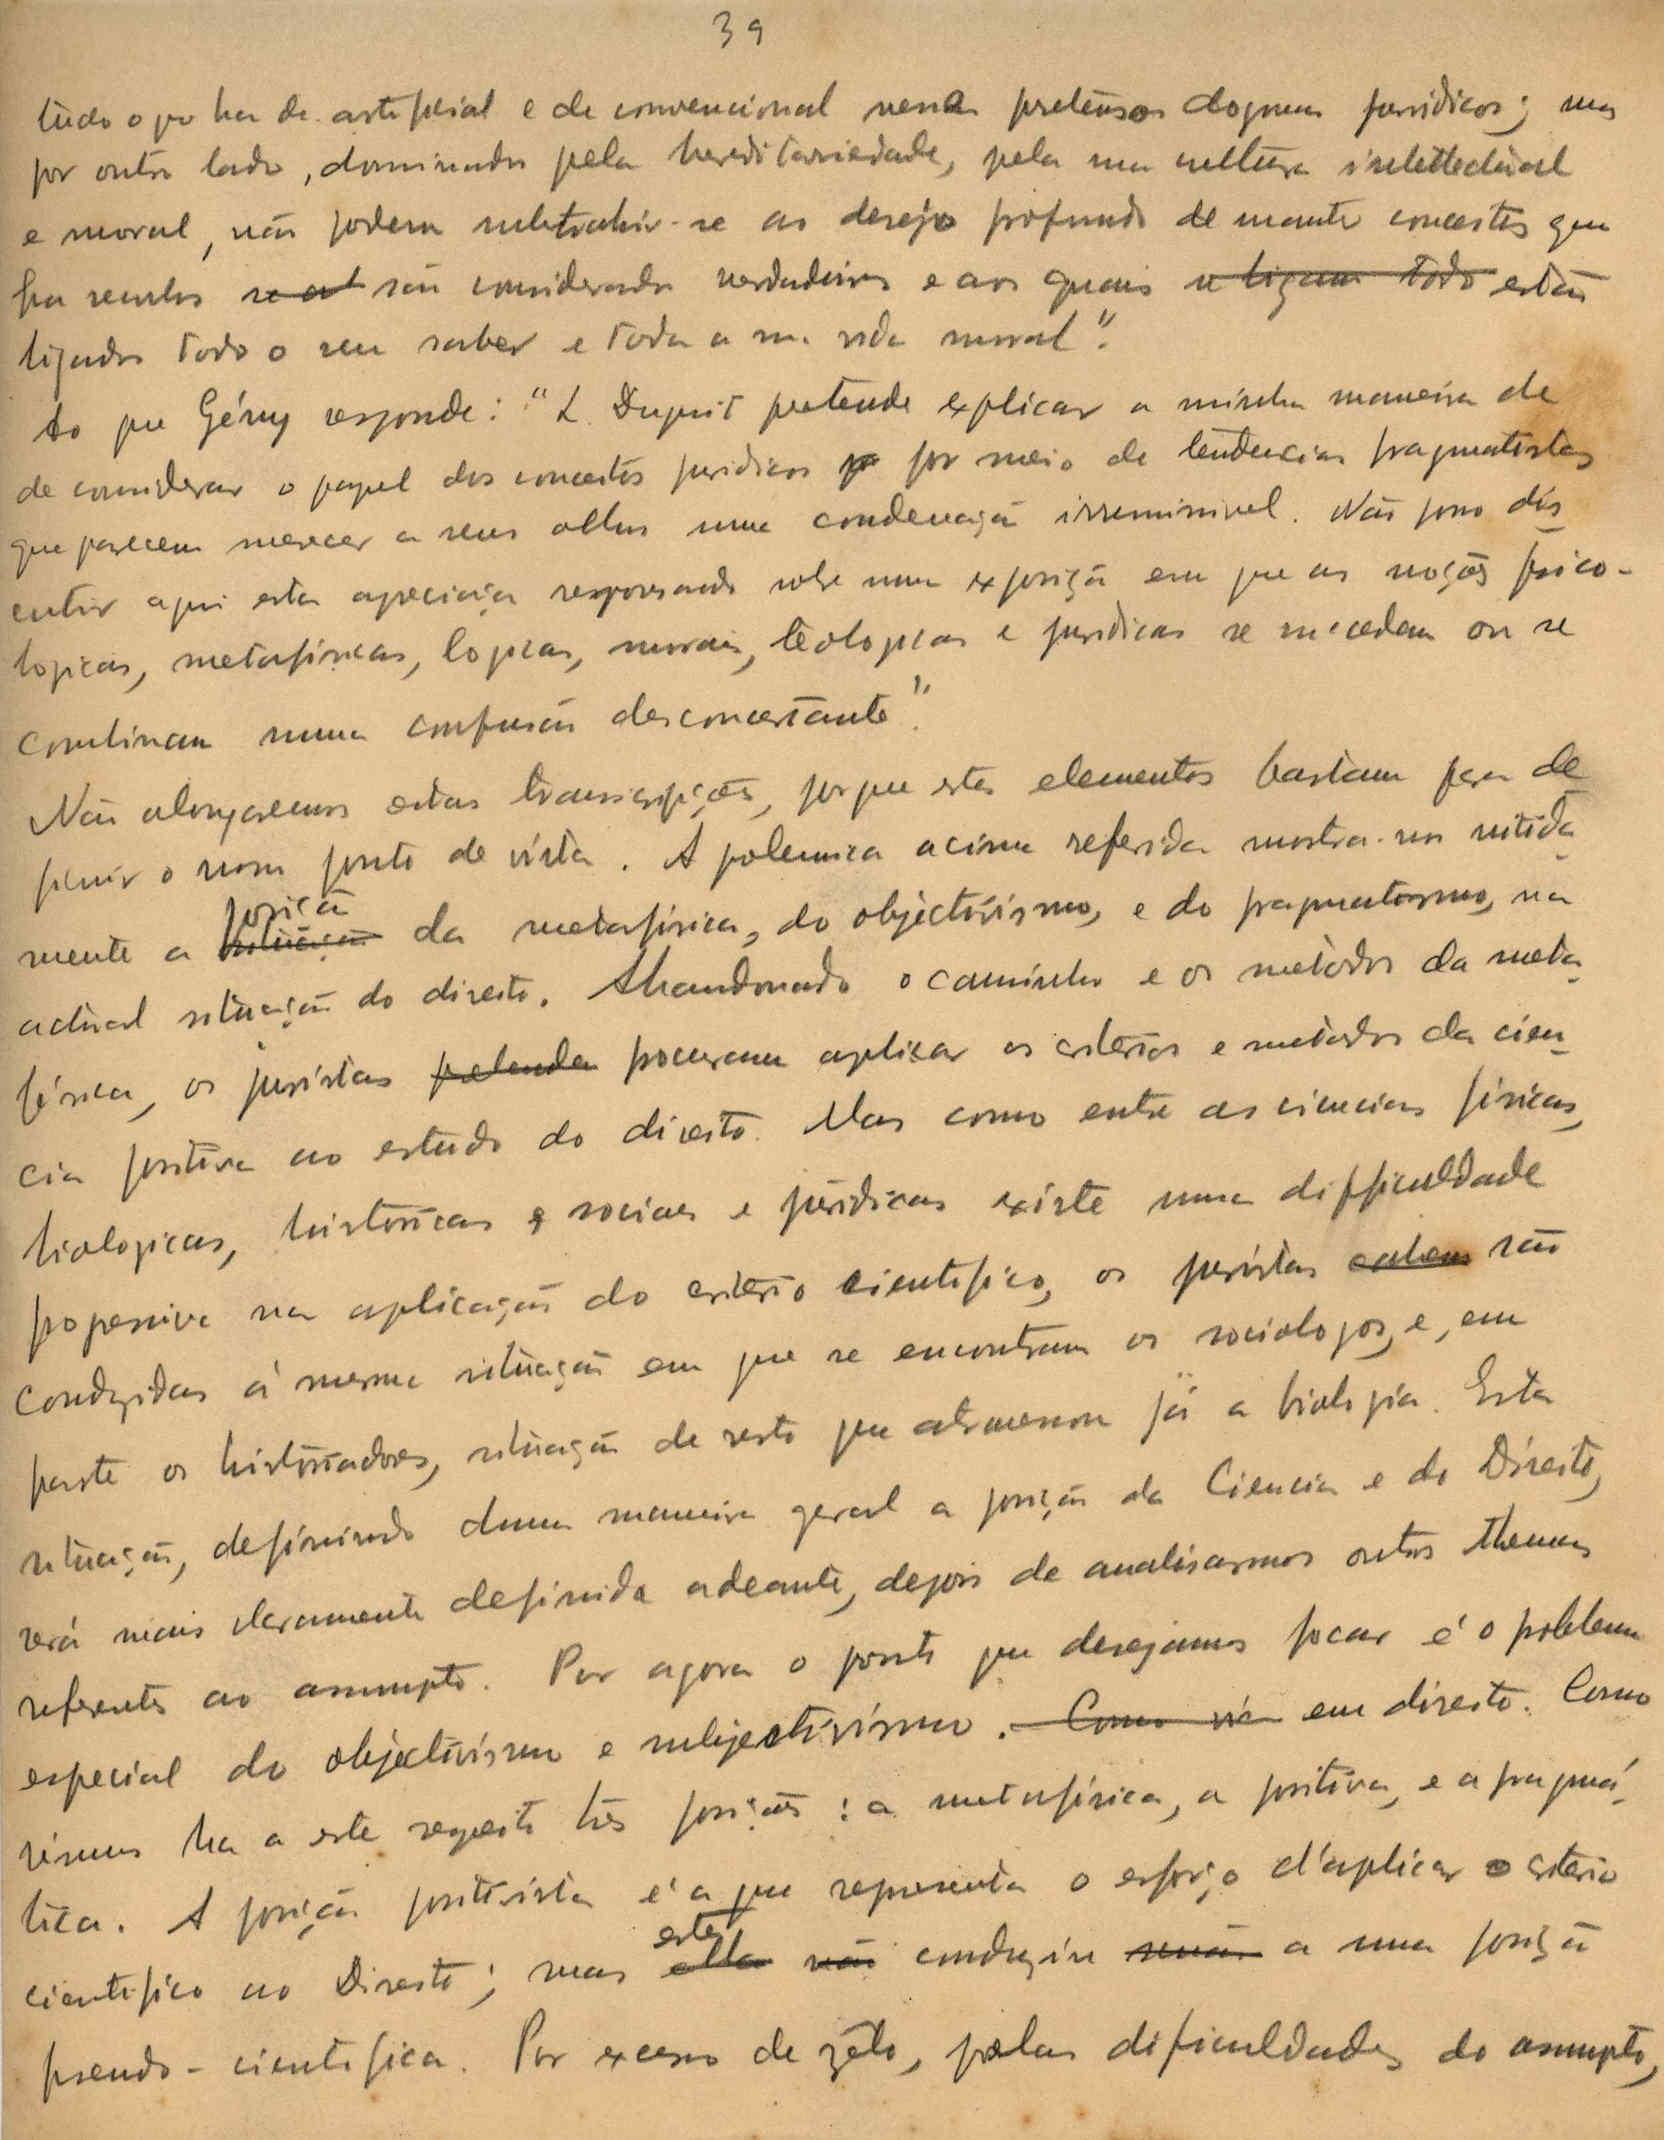 39
tudo o que ha de artificial e de convencional nesses pretensos dogmas juridicos; mas
por outro lado, dominados pela hereditariedade, pela sua cultura intellectual
e moral, não podem subtrahir-se ao desejo profundo de manter conceitos que
ha seculos são considerados verdadeiros e aos quais se ligam todo estão
ligados todo o seu saber e toda a sua vida moral".
Ao que Gény responde: "L. Duguit pretende explicar a minha maneira de
de considerar o papel dos conceitos juridicos por meio de tendencias pragmatistas
que parecem merecer a seus olhos uma condenação irremissivel. Não posso dis-
cutir aqui esta apreciação repousando sobre uma exposição em que as noções psico-
logicas, metafísicas, logicas, morais, teologicas e juridicas se sucedem ou se
combinam numa confusão desconcertante".
Não alongaremos estas transcripções, porque estes elementos bastam para de-
finir o nosso ponto de vista. A polemica acima referida mostra-nos nitida-
mente a posição da metafísica, do objectivismo, e do pragmatismo, na
actual situação do direito. Abandonado o caminho e os metodos da meta-
física, os juristas pretendem procuram aplicar os criterios e metodos da cien-
cia positiva ao estudo do direito. Mas como entre as ciencias físicas,
biologicas, historicas e sociaes e juridicas existe uma difficuldade
progressiva na aplicação do criterio cientifico, os juristas são
conduzidos á mesma situação em que se encontram os sociologos, e, em
parte os historiadores, situação de resto que atravessou já a biologia. Esta
situação, definindo duma maneira geral a posição da Ciencia e do Direito,
será mais claramente definida adeante, depois de analisarmos outros themas
referentes ao assumpto. Por agora o ponto que desejamos focar é o problema
especial do objectivismo e subjectivismo. Como via em direito. Como
vimos ha a este respeito três posições: a metafísica, a positiva, e a pragmá-
tica. A posição positivista é a que representa o esforço d'aplicar o criterio
cientifico ao Direito; mas este ella não conduziu senão a uma posição
pseudo-cientifica. Por excesso de zêlo, pelas dificuldades do assumpto,